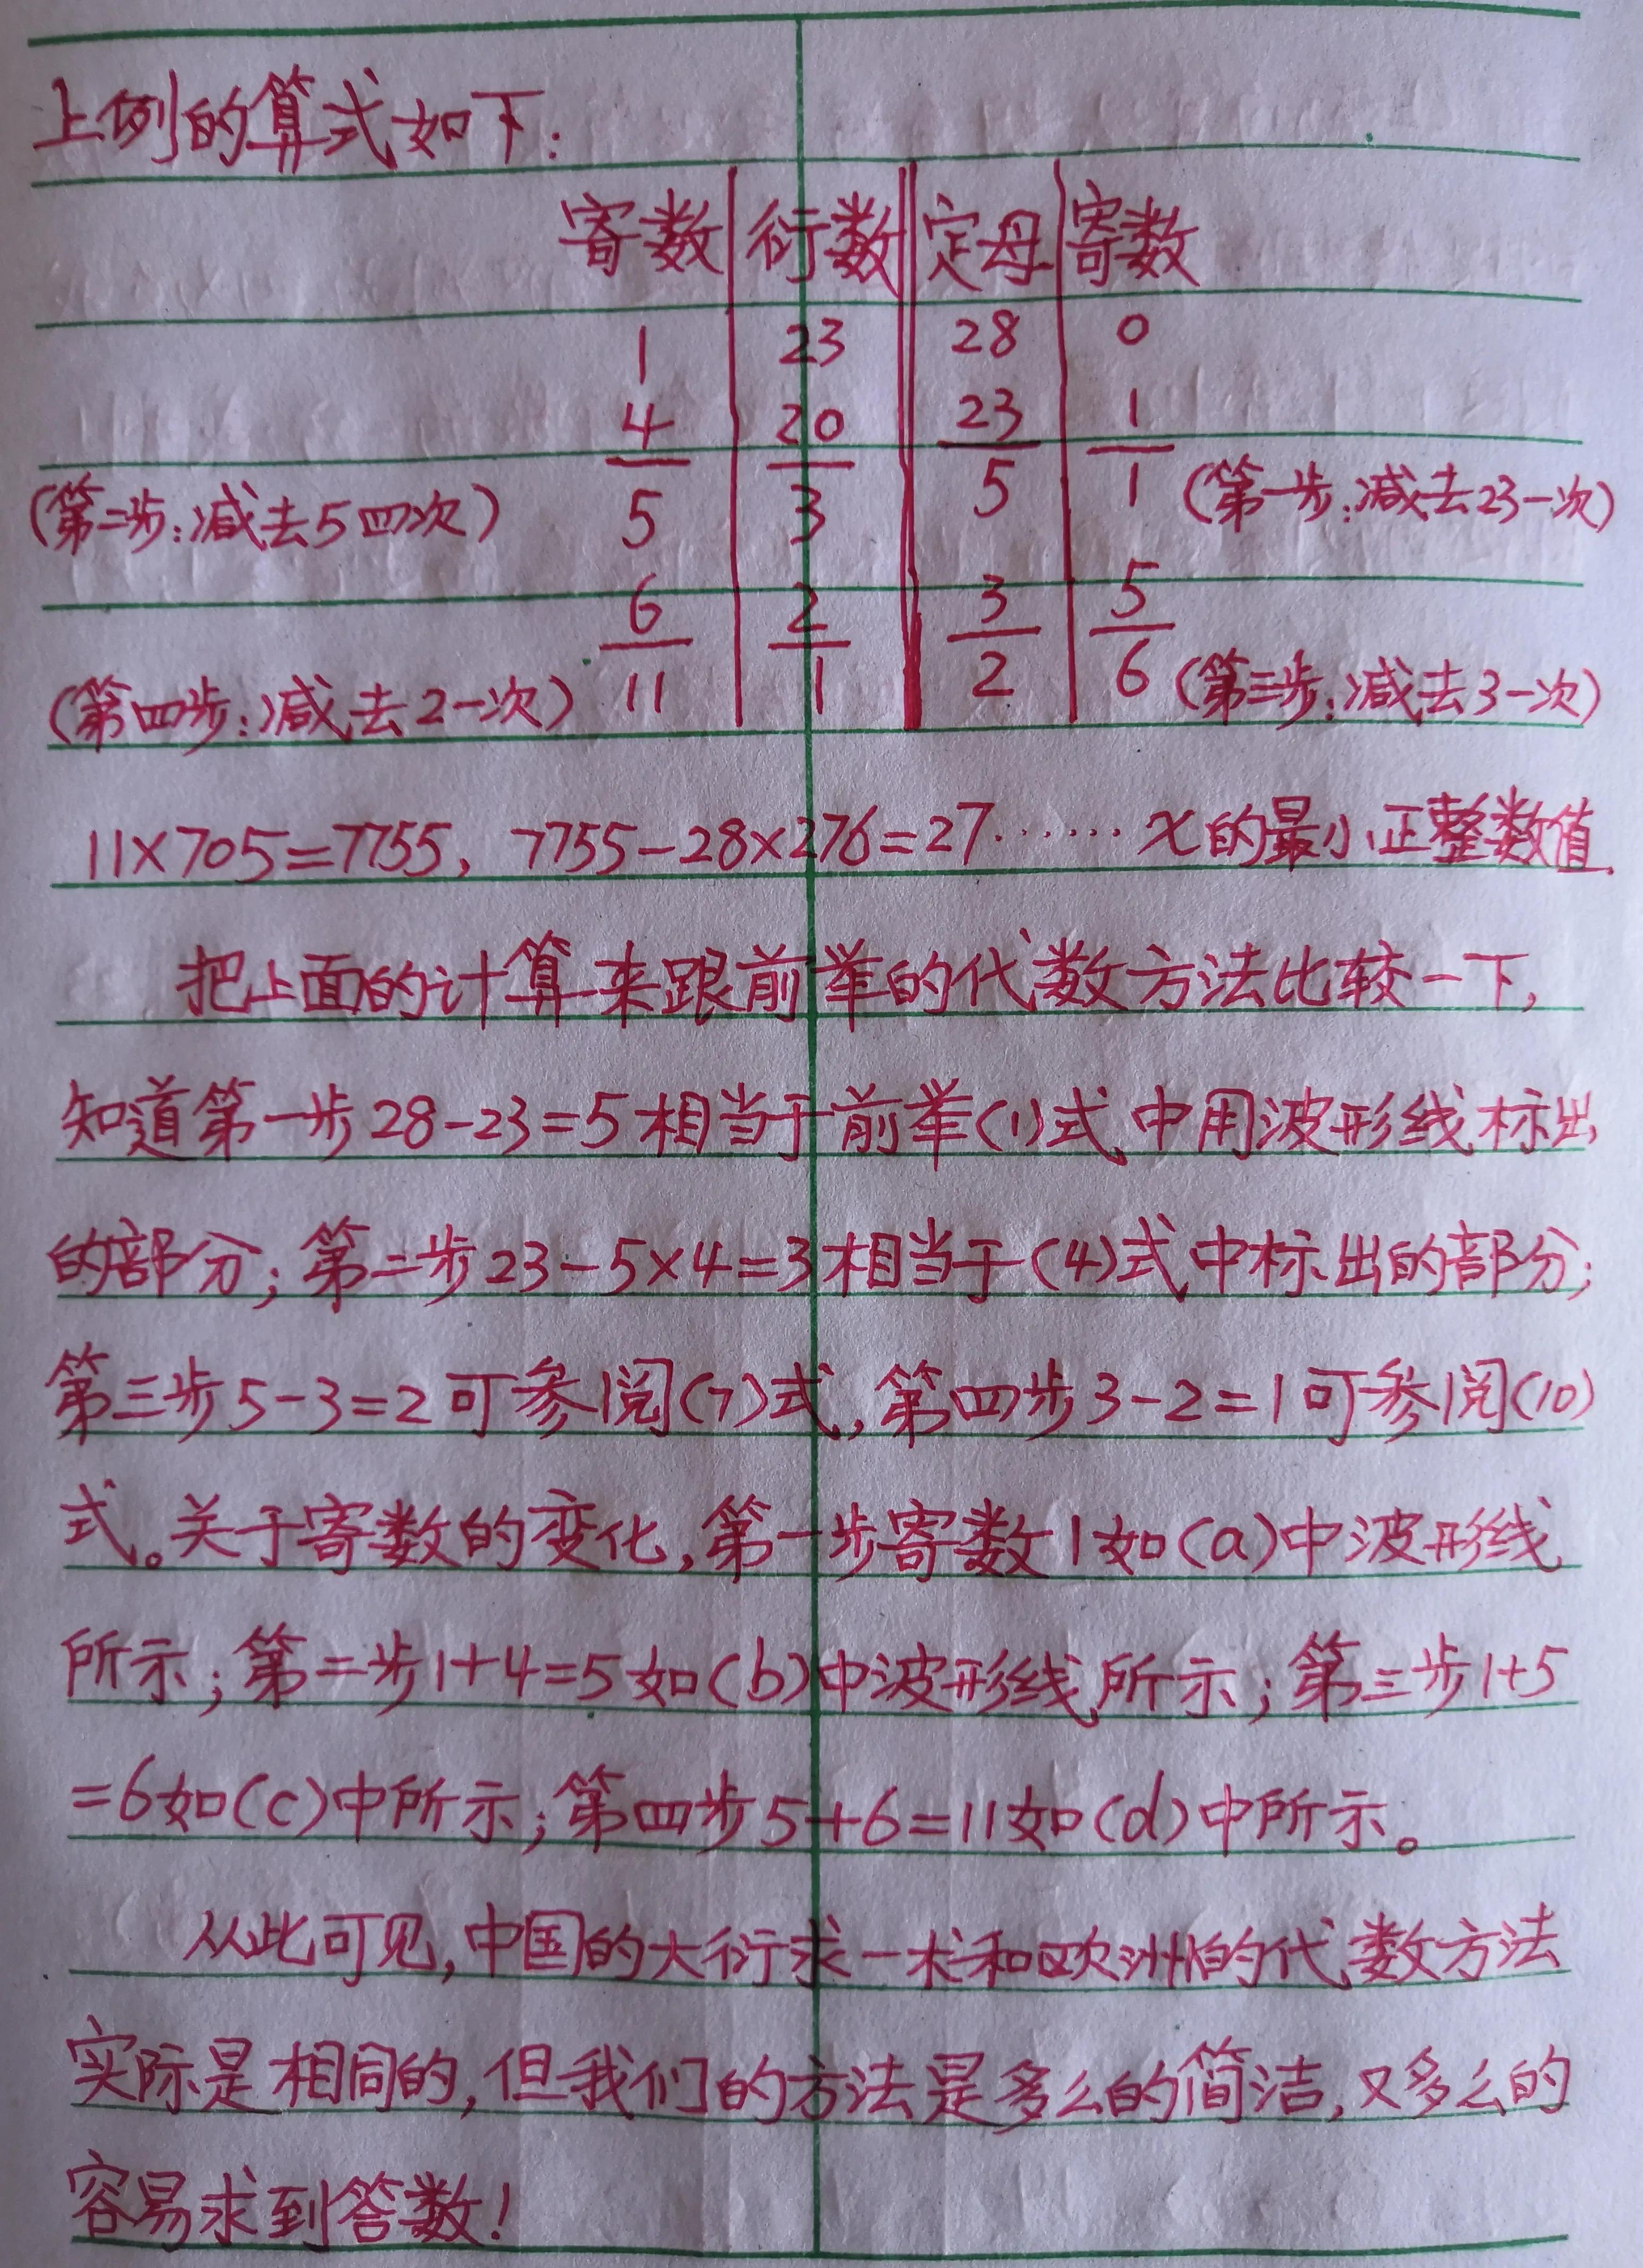 上例的算式如下:
寄数 衍数 定母 寄数
1 23 28 0
4 20 23 1
(第二步:减去5四次) 5 3 5 1 (第一步:减去23一次)
6 2 3 5
(第四步:减去2一次) 11 1 2 6 (第三步:减去3一次)
11×705=7755, 7755-28×276=27……x的最小正整数值.
把上面的计算来跟前举的代数方法比较一下,
知道第一步28-23=5相当于前举(1)式中用波形线标出
的部分;第二步23-5×4=3相当于(4)式中标出的部分;
第三步5-3=2可参阅(7)式,第四步3-2=1可参阅(10)
式。关于寄数的变化,第一步寄数1如(a)中波形线
所示;第二步1+4=5如(b)中波形线所示;第三步1+5
=6如(c)中所示;第四步5+6=11如(d)中所示。
从此可见,中国的大衍求一术和欧洲的代数方法
实际是相同的,但我们的方法是多么的简洁,又多么的
容易求到答数!